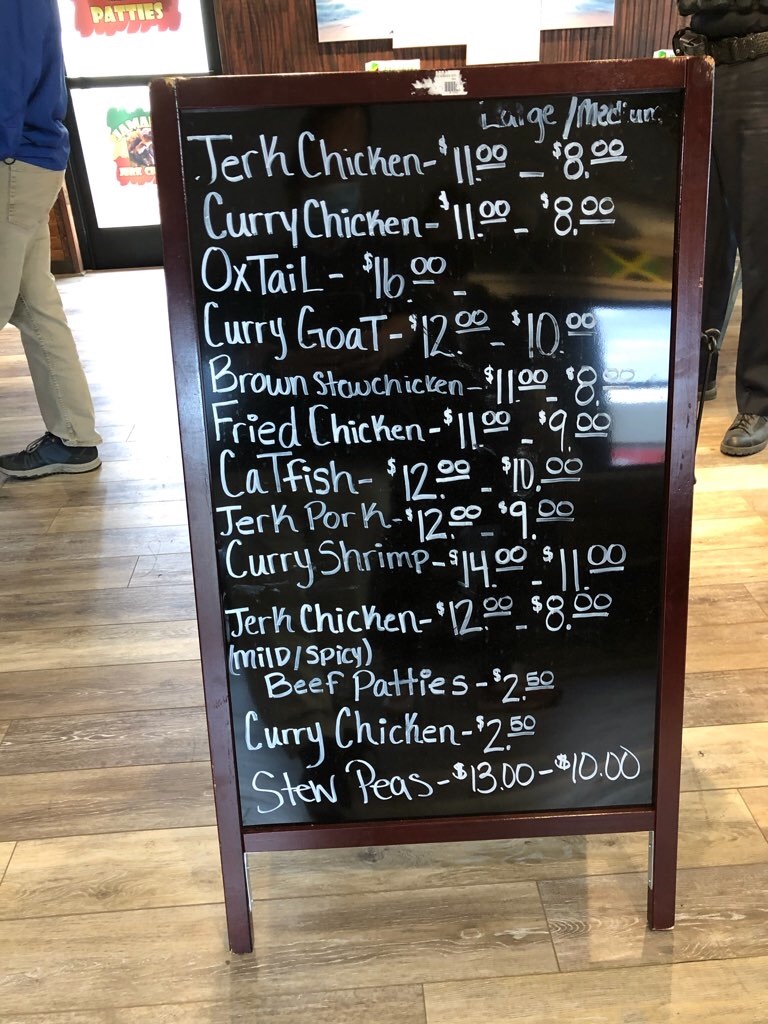 PATTIES
Large / Medium
Jerk Chicken - $11.00 - $8.00
Curry Chicken - $11.00 - $8.00
OxTaiL - $16.00 -
Curry GoaT - $12.00 - $10.00
Brown Stewchicken - $11.00 - $8.00
Fried Chicken - $11.00 - $9.00
CaTfish - $12.00 - $10.00
Jerk Pork - $12.00 - $9.00
Curry Shrimp - $14.00 - $11.00
Jerk Chicken - $12.00 - $8.00
(MilD/Spicy)
Beef Patties - $2.50
Curry Chicken - $2.50
Stew Peas - $13.00 - $10.00